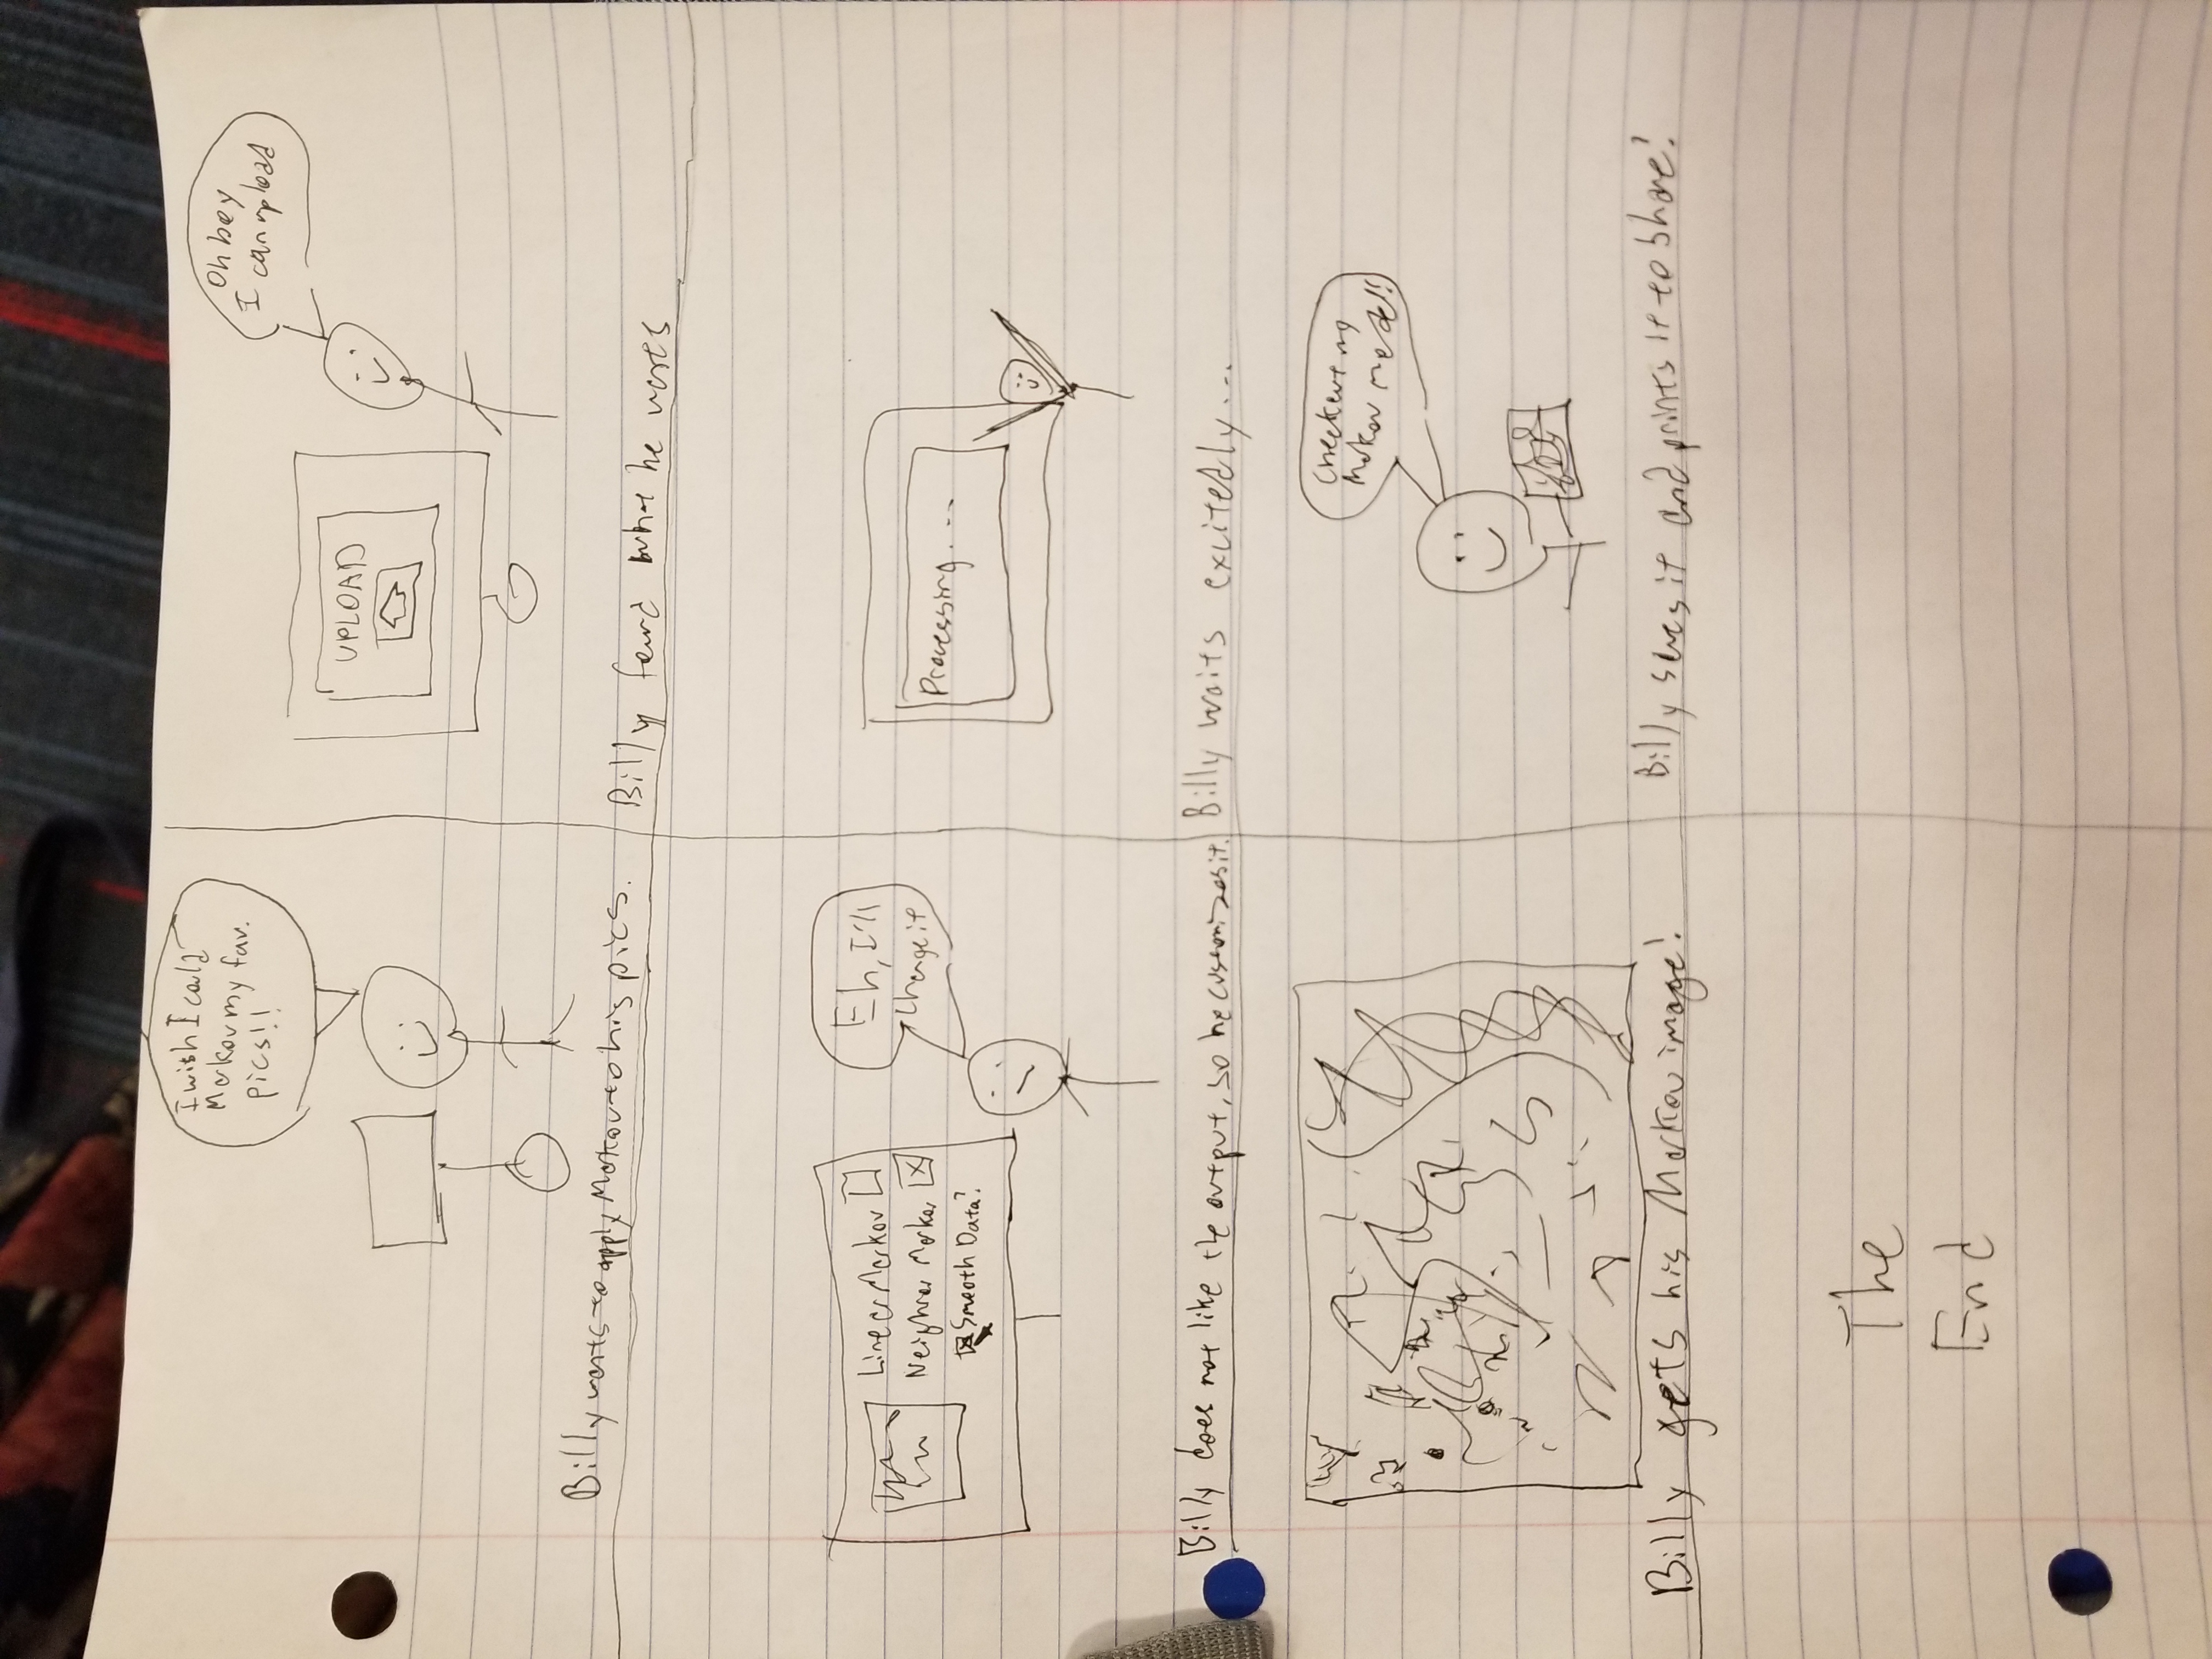 I wish I could
Markov my fav.
pics!!
Billy wants to apply Markov to his pics.
Oh boy
I can upload
UPLOAD
Billy found what he wants
Linear Markov
Neighbor Markov
Smooth Data?
Eh, I'll
change it
Billy does not like the output, so he customizes it.
Processing...
Billy waits excitedly...
Billy gets his Markov image!
Check out my
Markov model!!
Billy saves it and prints it to share!
The
End